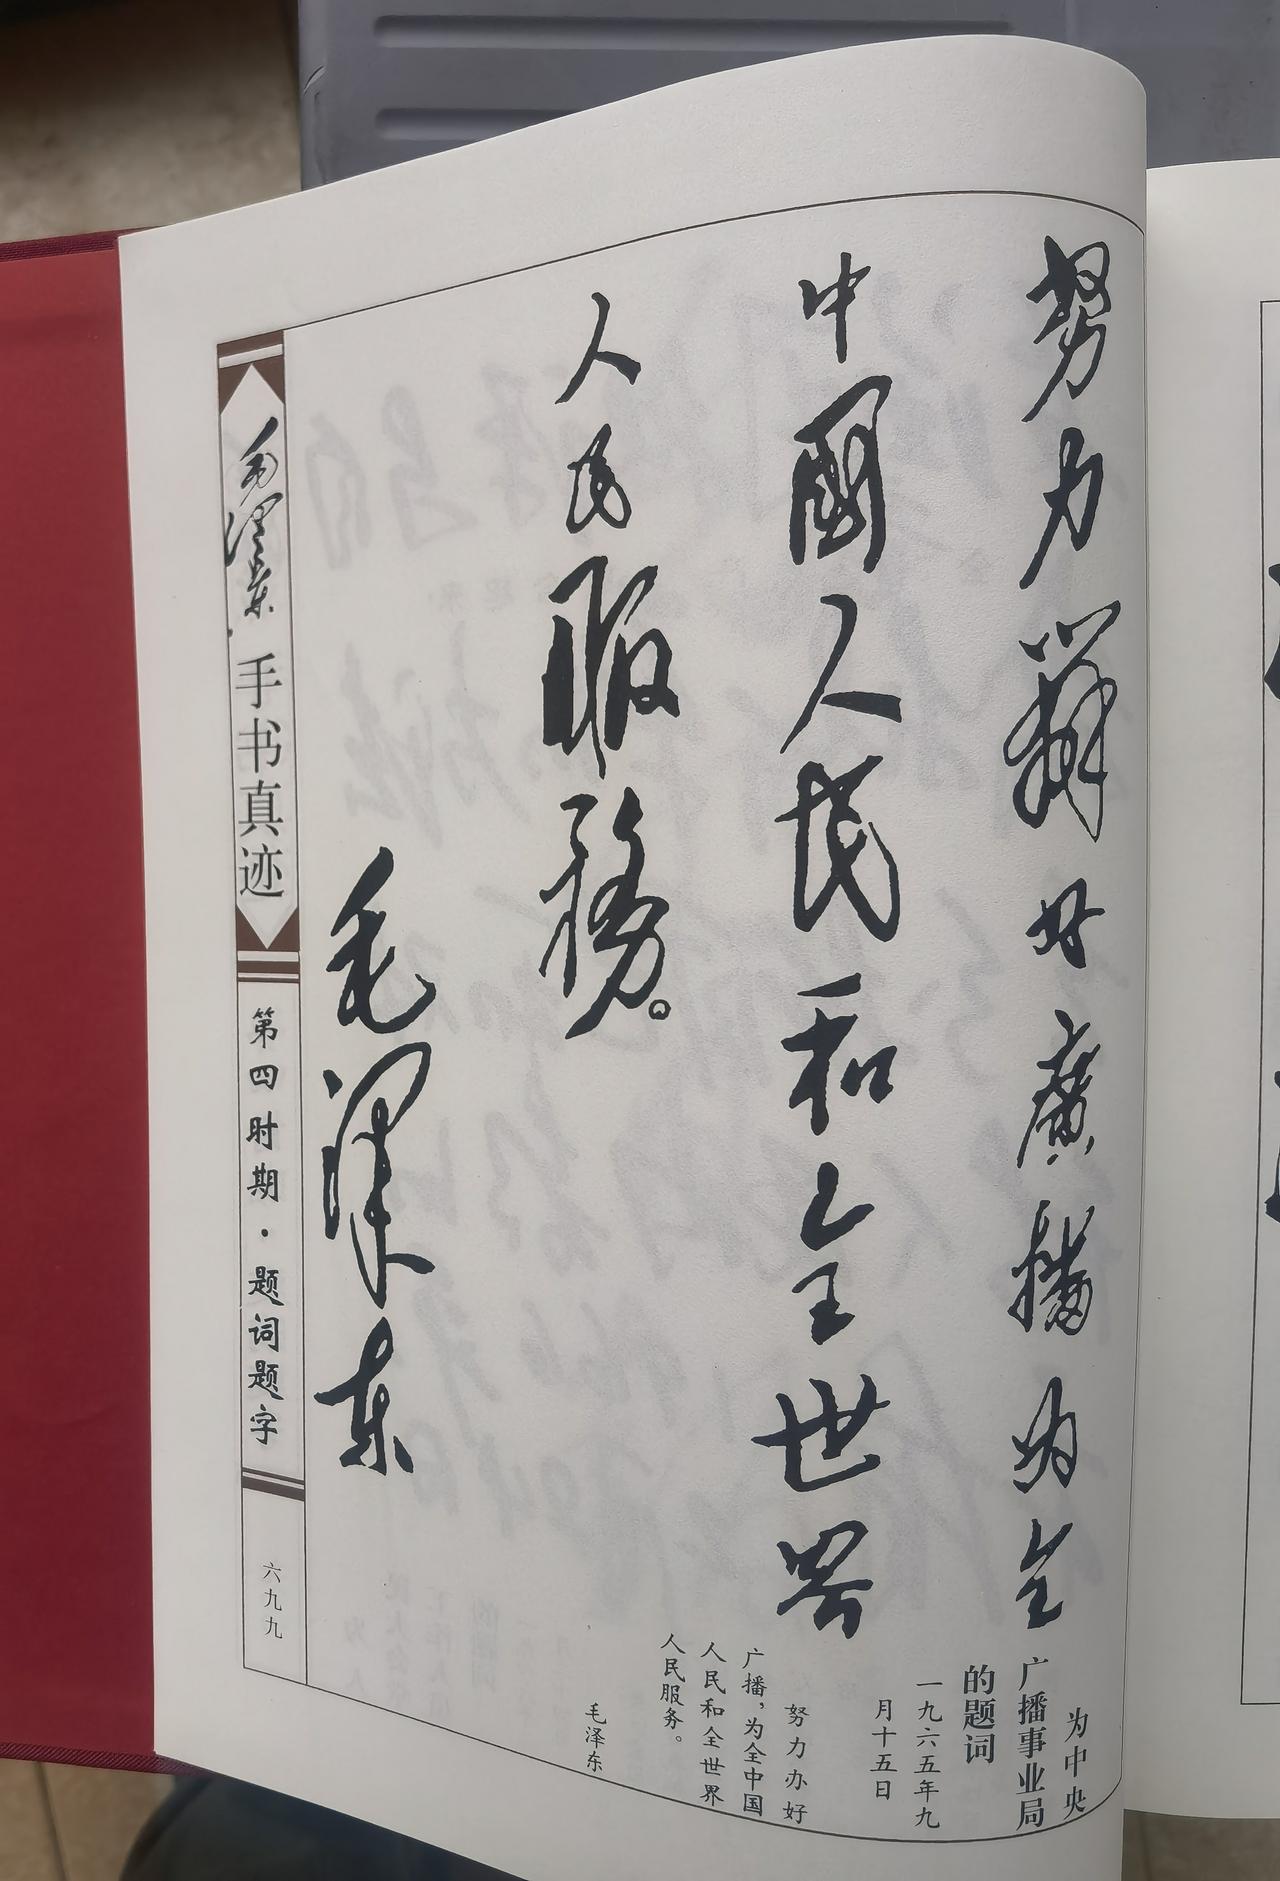 努力辦好廣播为全
中國人民和全世界
人民服務。
毛泽东
为中央
广播事业局
的题词
一九六五年九
月十五日
努力办好
广播，为全中国
人民和全世界
人民服务。
毛泽东
毛泽东 手书真迹
第四时期·题词题字
六九九